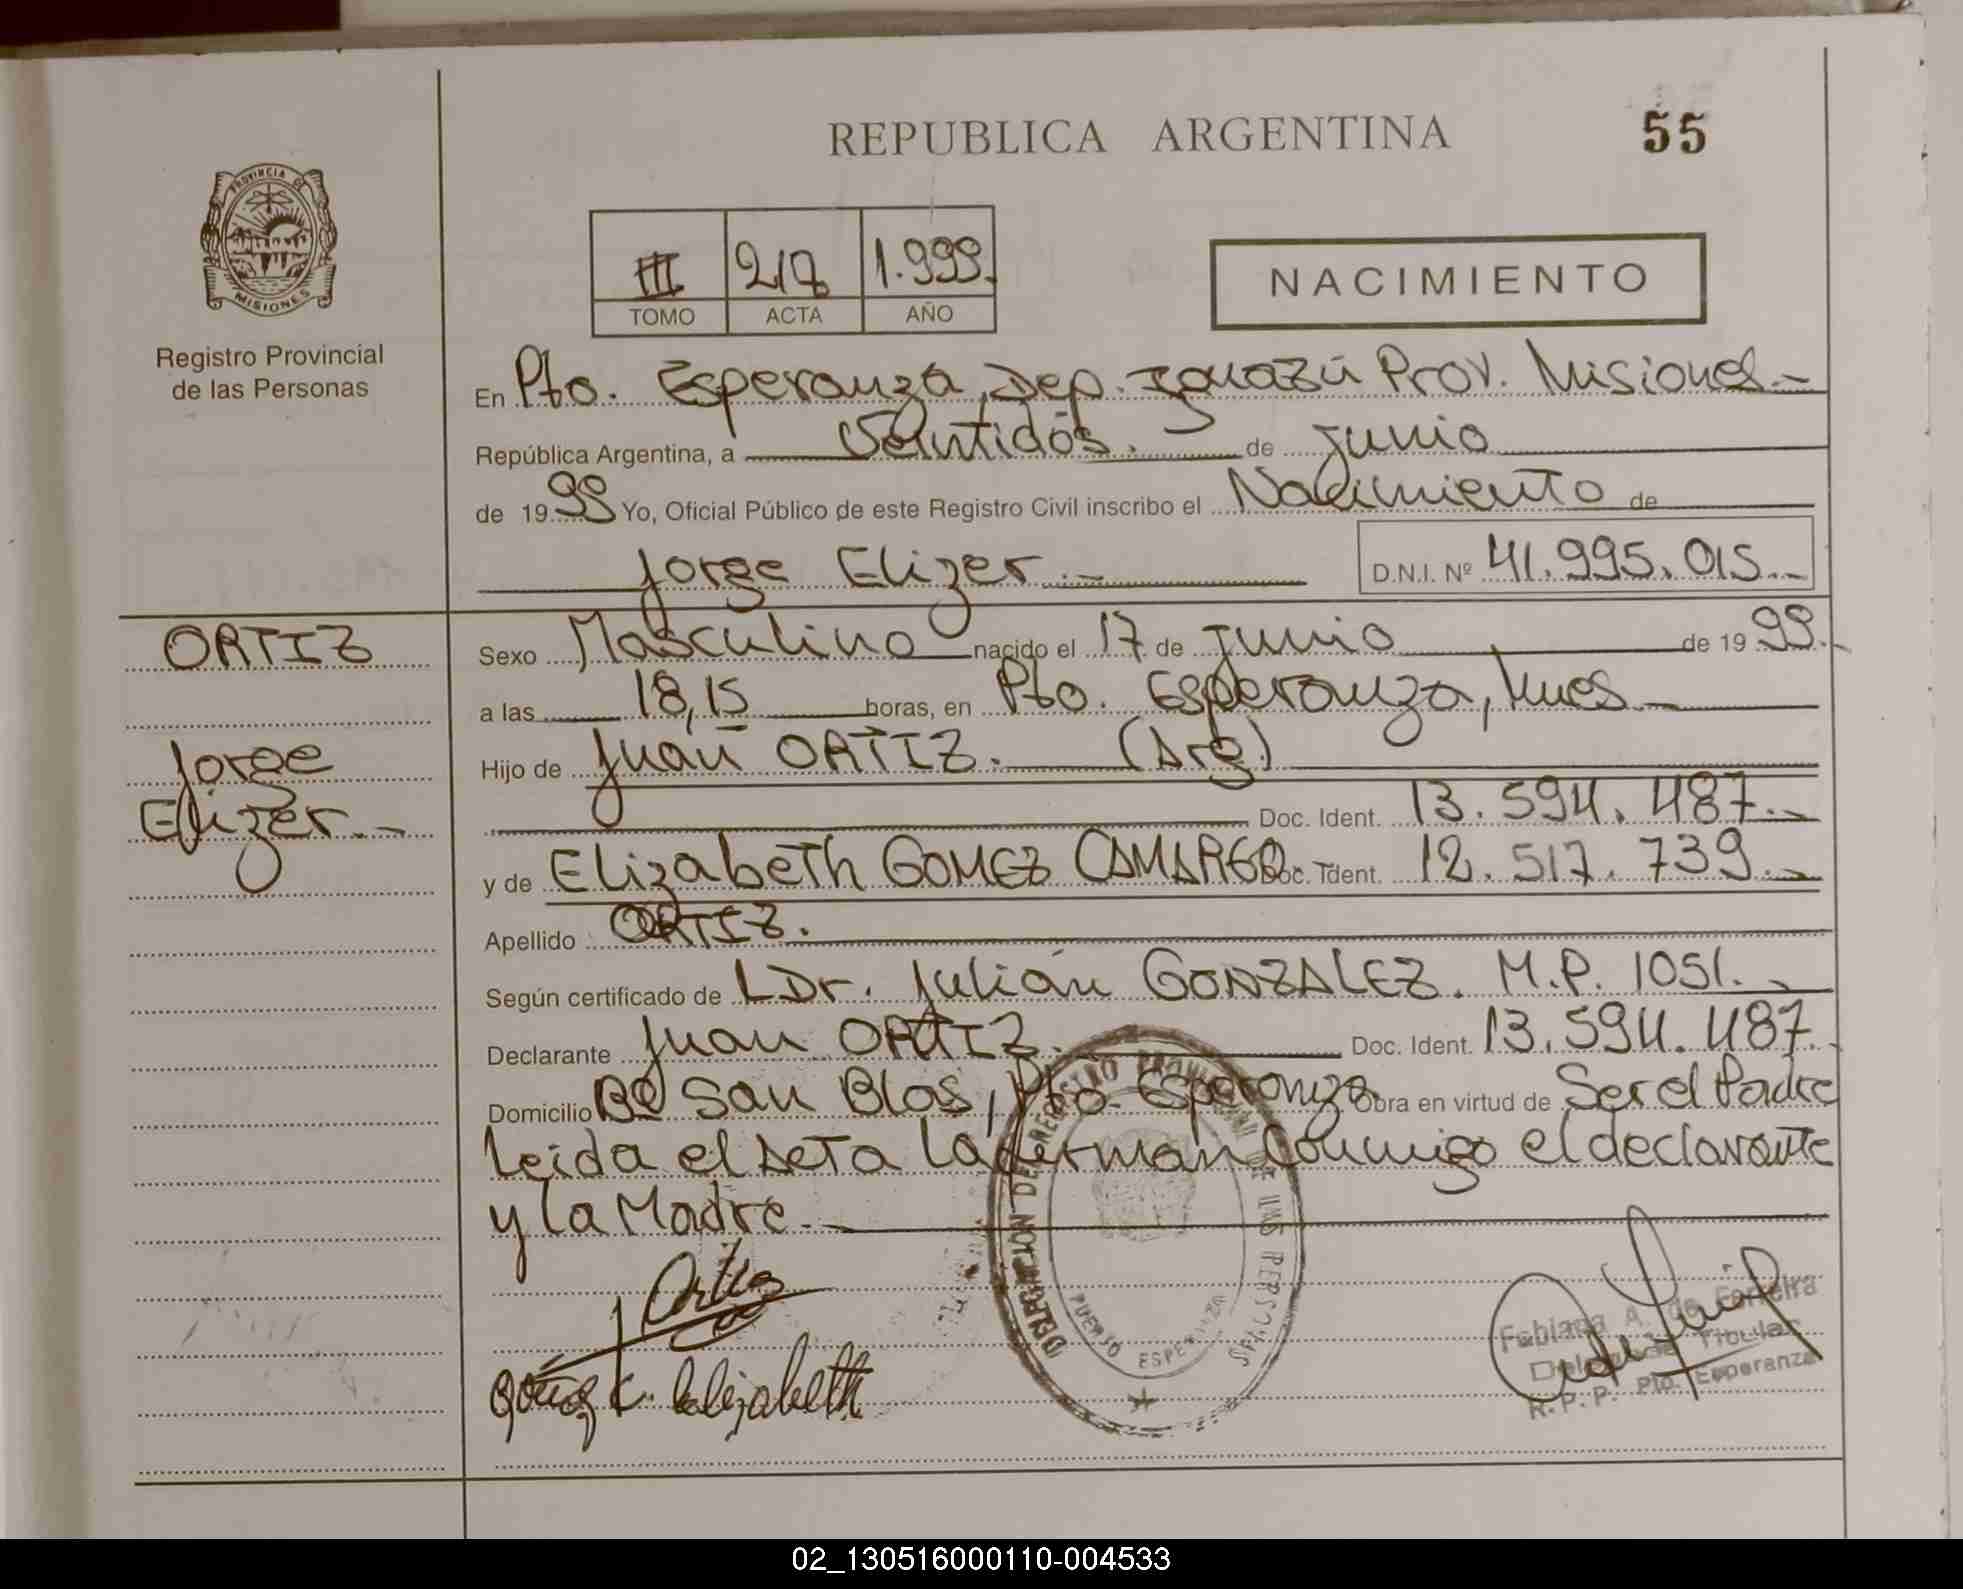 REPUBLICA ARGENTINA
55
PROVINCIA DE
MISIONES
Registro Provincial
de las Personas
III 217 1.999.
TOMO ACTA AÑO
NACIMIENTO
En Pto. Esperanza, Dep. Iguazú Prov. Misiones.-
República Argentina, a Veintidós. de junio
de 1999 Yo, Oficial Público de este Registro Civil inscribo el Nacimiento de
Jorge Elizer.- D.N.I. Nº 41.995.015.-
ORTIZ
Jorge
Elizer.-
Sexo Masculino nacido el 17 de junio de 1999.
a las 18,15 horas, en Pto. Esperanza, Mnes.-
Hijo de Juan ORTIZ. (Arg)
Doc. Ident. 13.594.487.-
y de Elizabeth GOMEZ CAMARGO Doc. Ident. 12.517.739.-
Apellido ORTIZ.
Según certificado de Dr. Julián GONZALEZ. M.P. 1051.-
Declarante Juan ORTIZ. Doc. Ident. 13.594.487.
Domicilio Bº San Blas, Pto. Esperanza Obra en virtud de Ser el Padre
Leida el Acta la firman conmigo el declarante
y la Madre.-
DELEGACION DE REGISTRO PROVINCIAL DE LAS PERSONAS
PUERTO ESPERANZA
Ortiz
Gómez C. Elizabeth
Fabiana A. de Ferreira
Delegada Titular
R.P.P. Pto. Esperanza
02_130516000110-004533